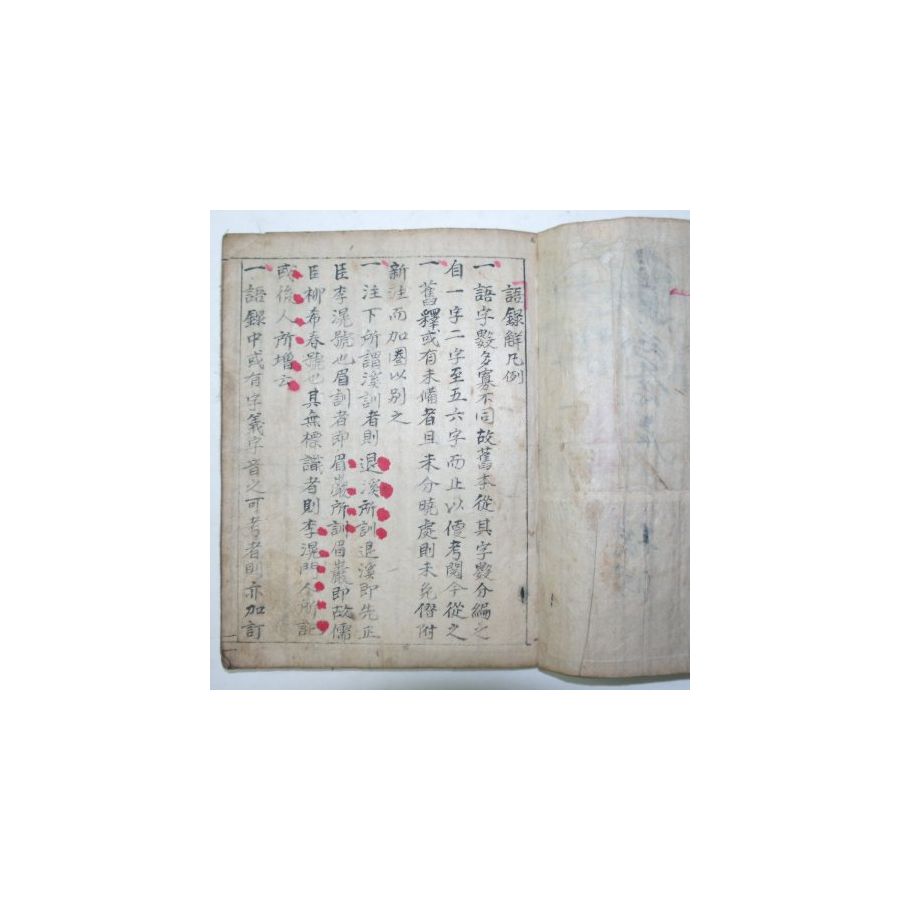 語錄解凡例
一 語字數多寡不同故舊本從其字數分編之
自一字二字至五六字而止以便考閱今從之
一 舊釋或有未備者且未分曉處則未免僭附
新注而加圈以別之
一 注下所謂溪訓者則退溪所訓退溪即先正
臣李滉號也眉訓者即眉巖所訓眉巖即故儒
臣柳希春號也其無標識者則李滉門人所記
或後人所增云
一 語錄中或有字義字音之可考者則亦加訂